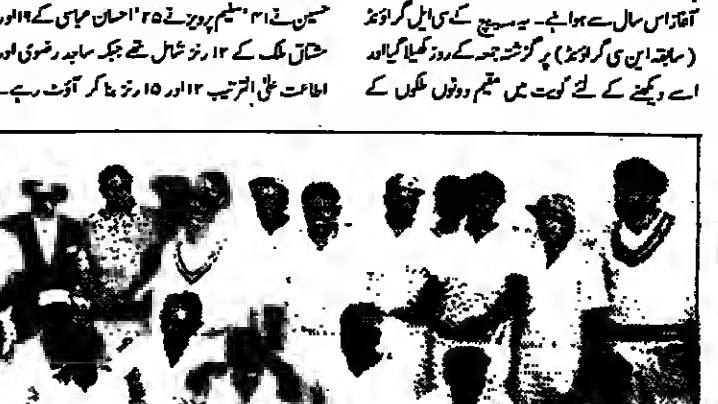 آغاز اس سال سے ہوا ہے۔ یہ میچ کے سی ایل گراؤنڈ
(سابقہ این سی گراؤنڈ) پر گزشتہ جمعہ کے روز کھیلا گیا اور
اسے دیکھنے کے لئے کویت میں مقیم دونوں ملکوں کے
حسین نے ۴۱ ' سلیم پرویز نے ۲۵ ' احسان عباسی کے ۱۹ اور
مشتاق ملک کے ۱۲ رنز شامل تھے جبکہ ساجد رضوی اور
اطاعت علی الترتیب ۱۲ اور ۱۵ رنز بنا کر آؤٹ رہے۔